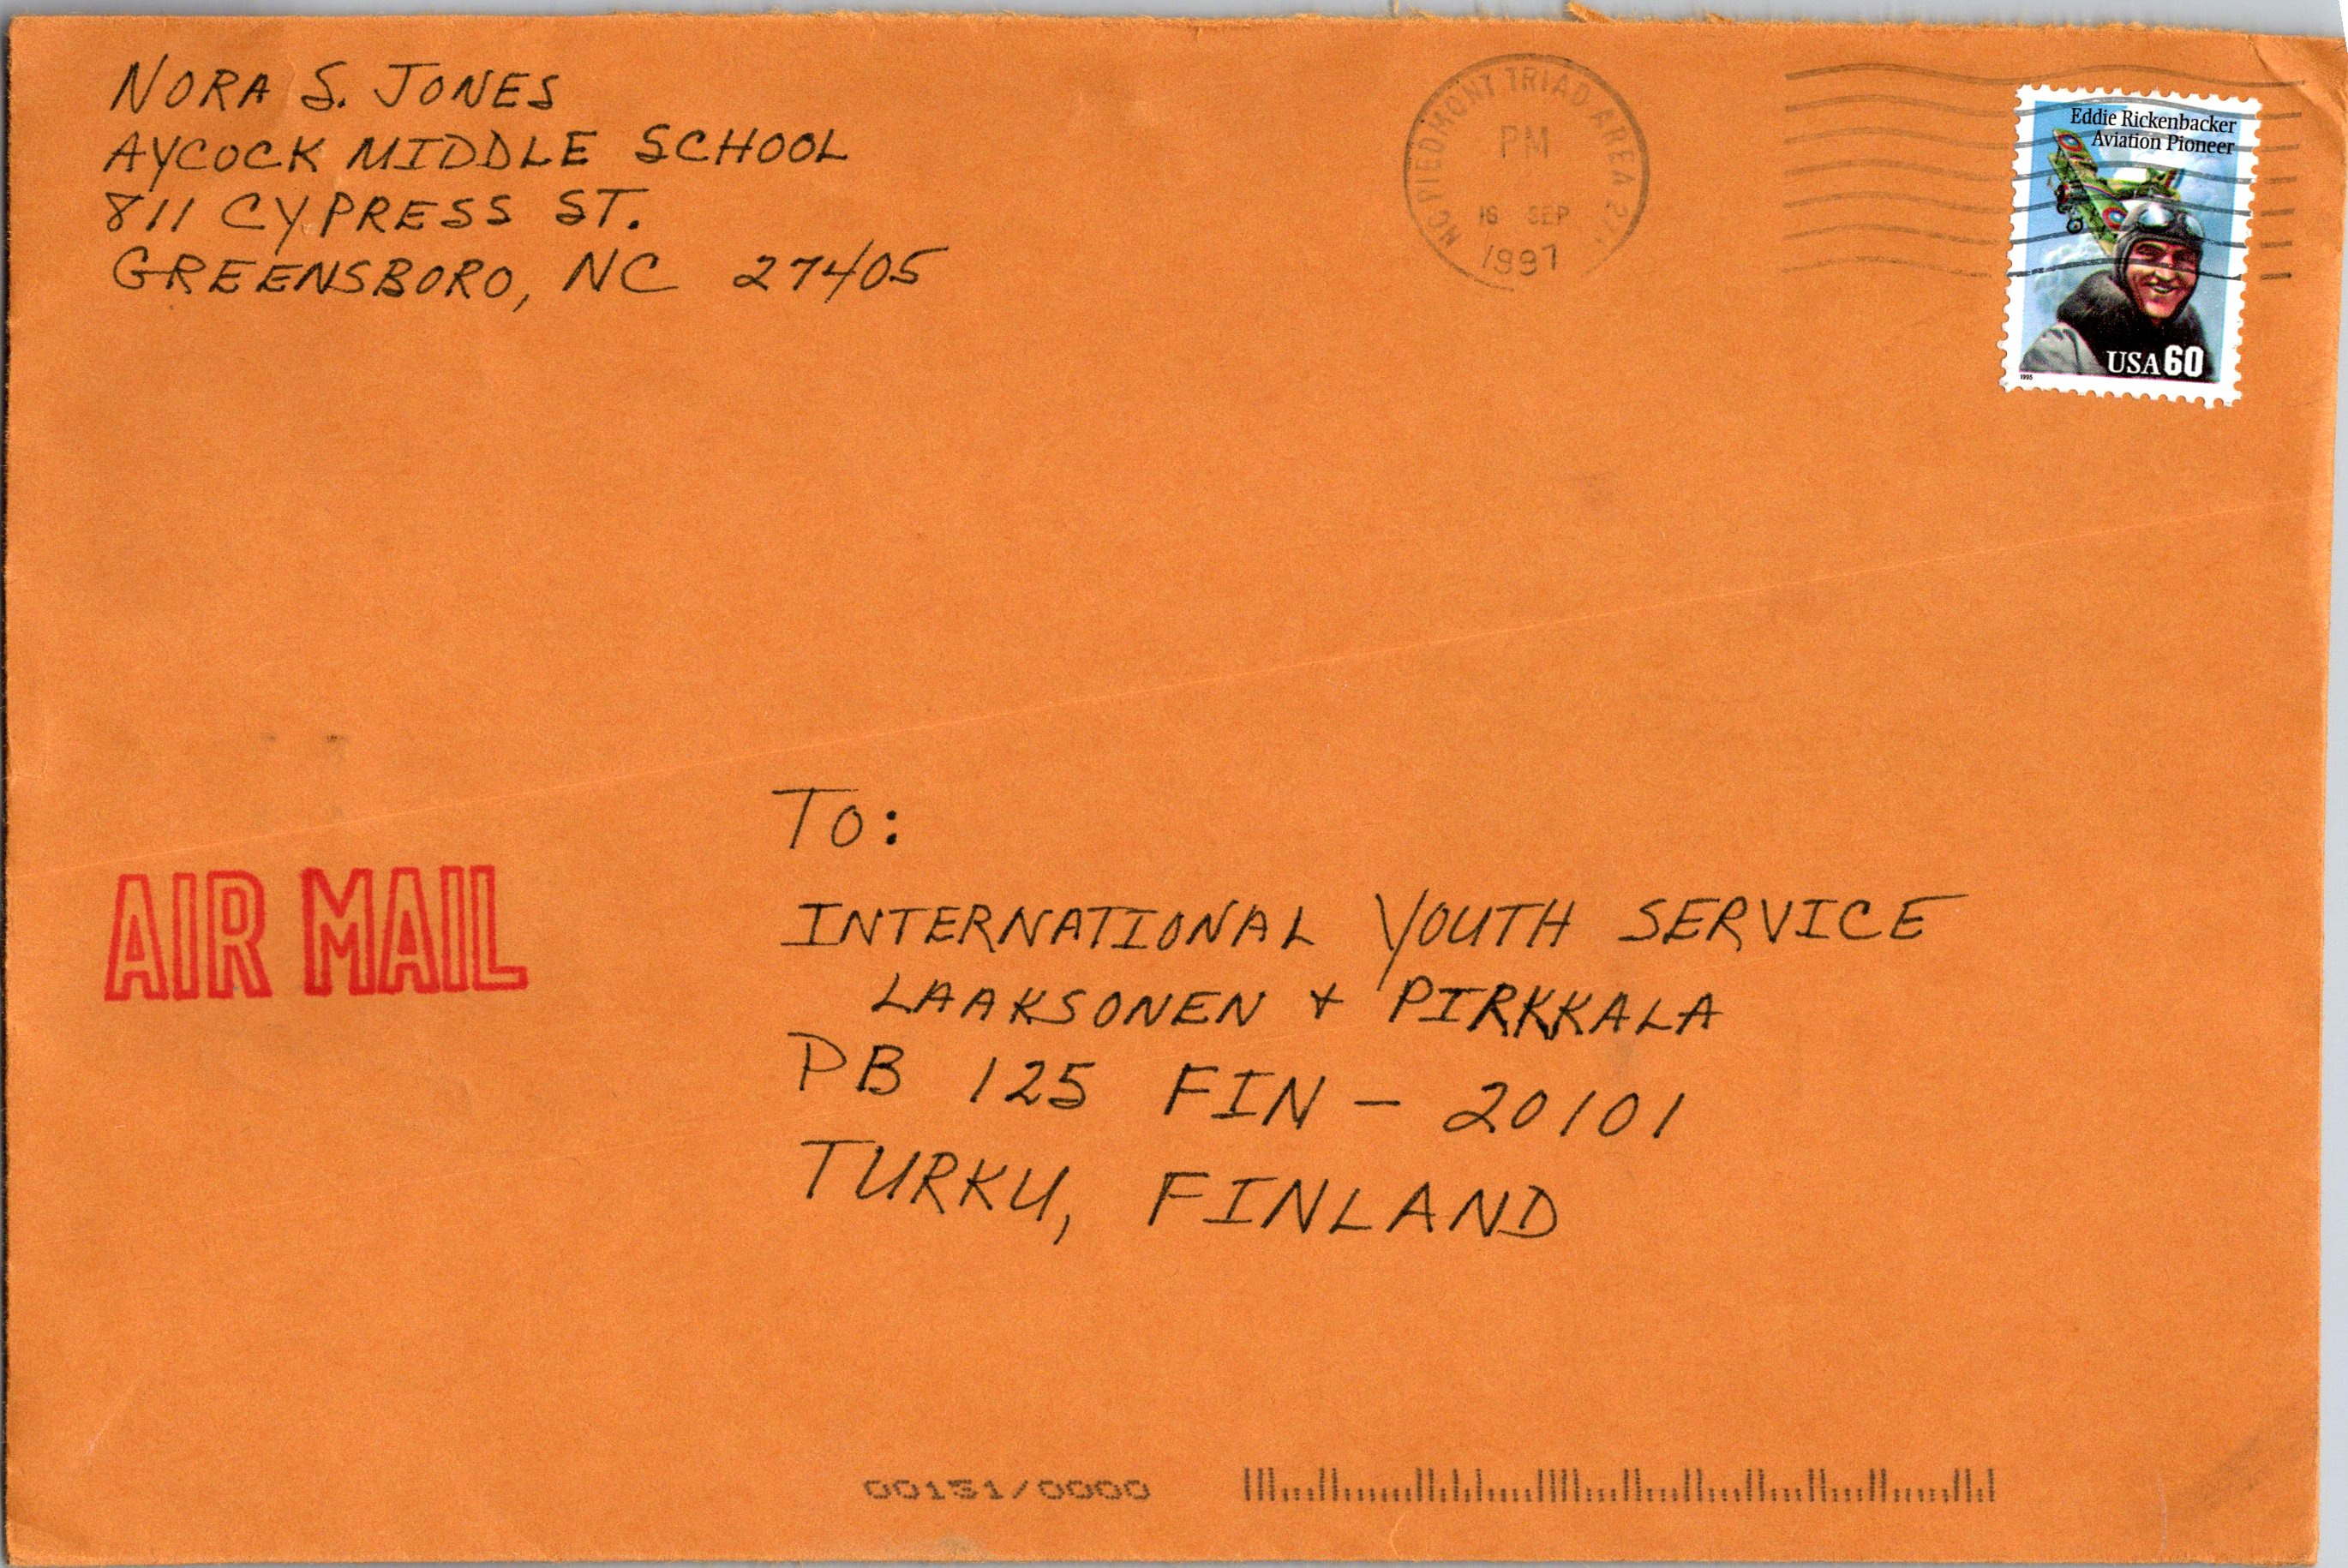 NORA S. JONES
AYCOCK MIDDLE SCHOOL
811 CYPRESS ST.
GREENSBORO, NC 27405
NC PIEDMONT TRIAD AREA
PM
16 SEP
1997
Eddie Rickenbacker
Aviation Pioneer
USA 60
1995
AIR MAIL
TO:
INTERNATIONAL YOUTH SERVICE
LAAKSONEN + PIRKKALA
PB 125 FIN - 20101
TURKU, FINLAND
00151/0000